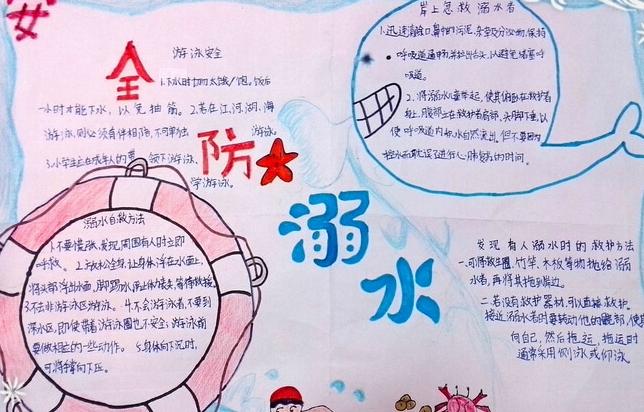 安
全
防
溺
水
游泳安全
1.下水时切勿太饿/饱。饭后
一小时才能下水，以免抽筋。2.若在江、河、湖、海
游泳，则必须有伴相陪，不可单独
游泳。
3.小学生应在成年人的
领下游泳、
学游泳。
溺水自救方法
1.不要慌张，发现周围有人时立即
呼救。2.放松全身，让身体浮在水面上，
将头部浮出水面，脚踢水，防止体力丧失，等待救援。
3.不去非游泳区游泳。4.不会游泳者，不要到
深水区，即使带着游泳圈也不安全，游泳前
要做相应的一些动作。5.身体向下沉时，
可将手掌向下压。
岸上急救溺水者
1.迅速清除口鼻中的污泥、杂草及分泌物，保持
呼吸道通畅，并拉出舌头，以避免堵塞呼
吸道。
2.将溺水儿童举起，使其俯卧在救护者
肩上，腹部在救护者肩部，头脚下垂，以
使呼吸道内积水自然流出。但不要因为
控水而耽误了进行心肺复苏的时间。
发现有人溺水时的救护方法
一.可将救生圈、竹竿、木板等物抛给溺
水者，再将其拖到岸边。
二.若没有救护器材，可以直接救护。
接近溺水者时要转动他的髋部，使其
向自己，然后拖运，拖运时
通常采用侧泳或仰泳